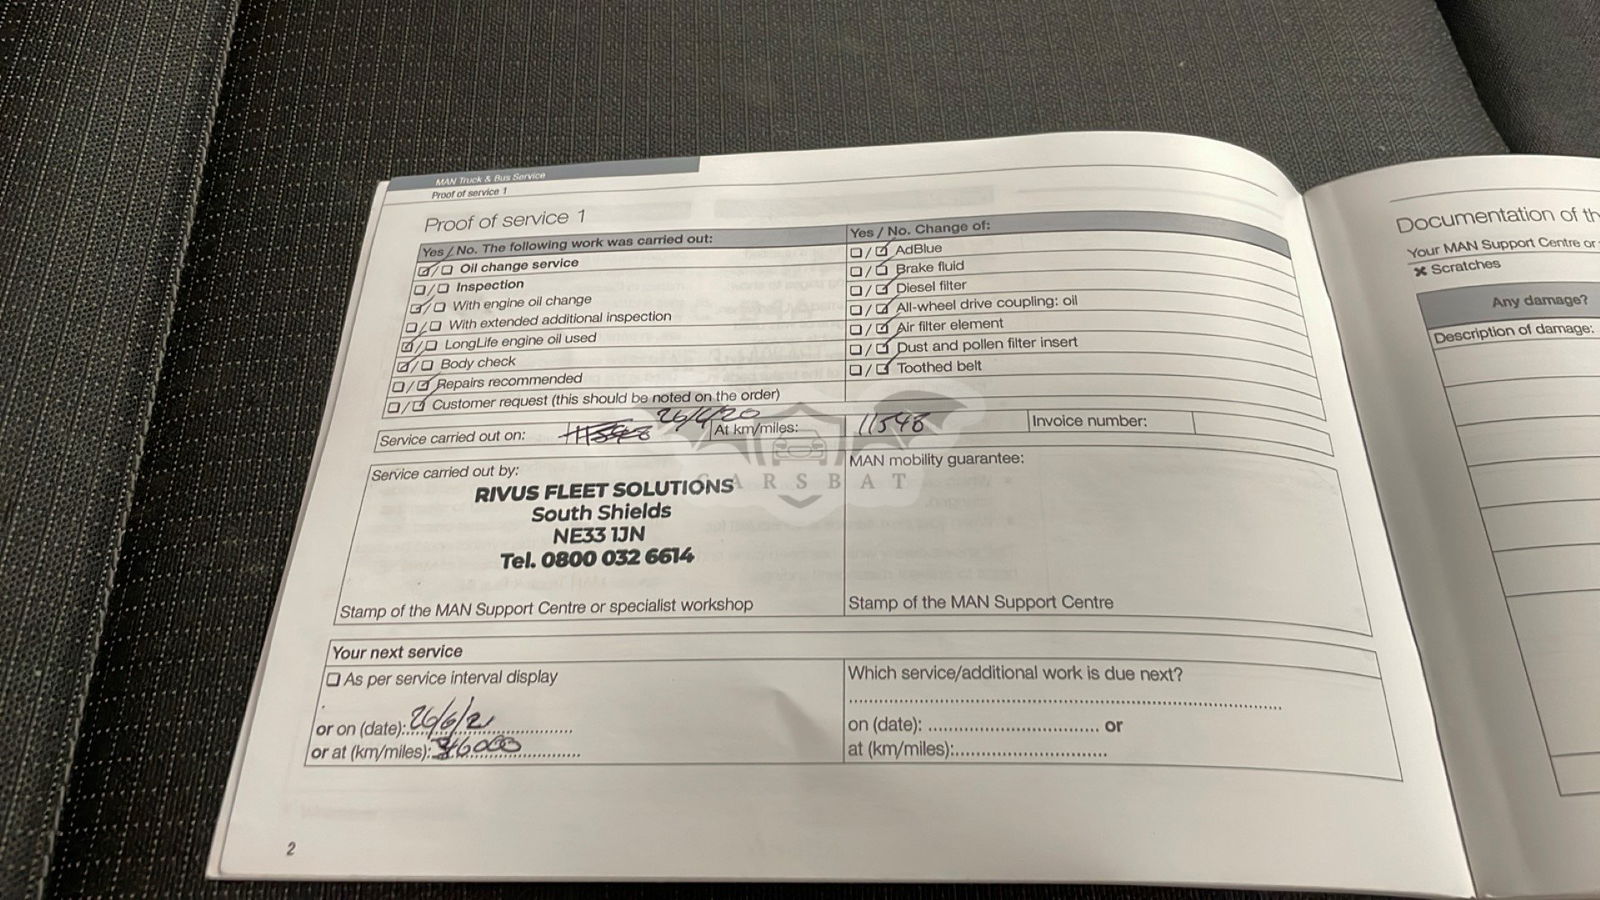 MAN Truck & Bus Service
Proof of service 1
Proof of service 1
Yes / No. The following work was carried out:
☑/☐ Oil change service
☐/☐ Inspection
☑/☐ With engine oil change
☐/☐ With extended additional inspection
☑/☐ LongLife engine oil used
☑/☐ Body check
☐/☑ Repairs recommended
☐/☑ Customer request (this should be noted on the order)
Yes / No. Change of:
☐/☑ AdBlue
☐/☐ Brake fluid
☐/☑ Diesel filter
☐/☑ All-wheel drive coupling: oil
☐/☑ Air filter element
☐/☑ Dust and pollen filter insert
☐/☑ Toothed belt
Service carried out on: At km/miles: 11548 Invoice number:
Service carried out by:
RIVUS FLEET SOLUTIONS
South Shields
NE33 1JN
Tel. 0800 032 6614
Stamp of the MAN Support Centre or specialist workshop
MAN mobility guarantee:
Stamp of the MAN Support Centre
CARSBAT
Your next service
☐ As per service interval display
or on (date): 26/6/21
or at (km/miles):
Which service/additional work is due next?
on (date): or
at (km/miles):
2
Documentation of
Your MAN Support Centre or
✖ Scratches
Any damage?
Description of damage: